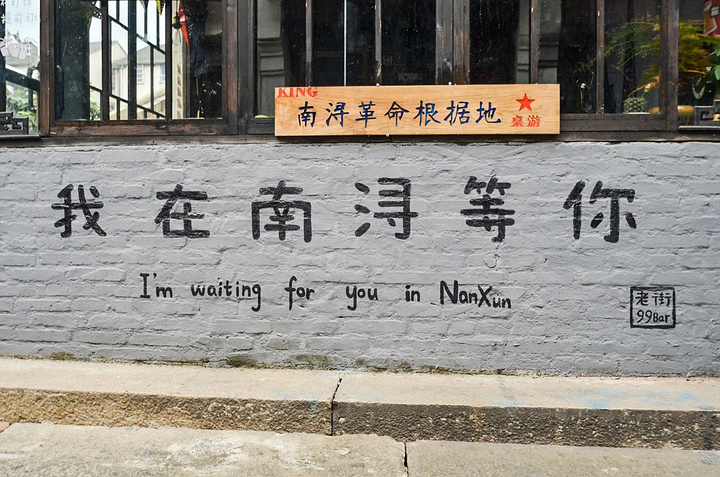 KING
南浔革命根据地
桌游
我在南浔等你
I'm waiting for you in NanXun
老街
99Bar